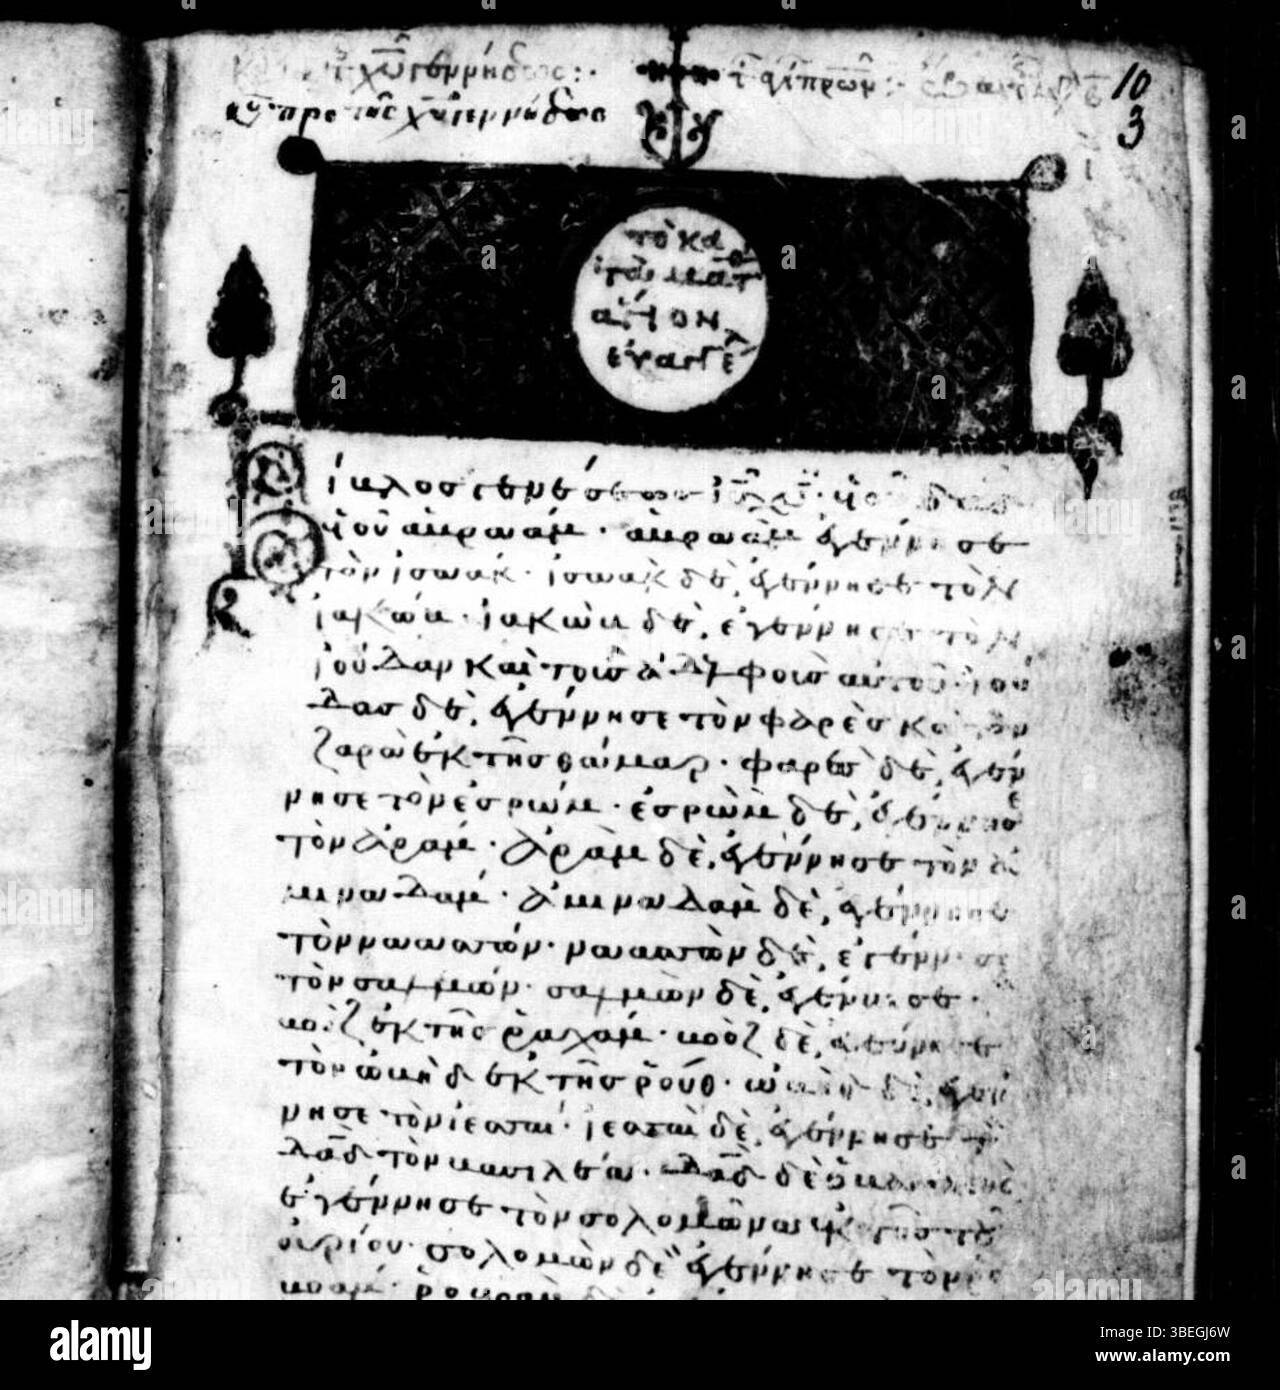 πρὸ τῆς χ̅υ̅ γεννήσεως
10
3
τὸ κα
τὰ ματθ
ἅγιον
εὐαγγέλ
Βίβλος γενέσεως ἰ̅υ̅ χ̅υ̅ υἱοῦ δα̅δ̅
υἱοῦ ἀβραάμ · ἀβραὰμ ἐγέννησε
τὸν ἰσαάκ · ἰσαὰκ δὲ, ἐγέννησε τὸν
ἰακώβ · ἰακὼβ δὲ, ἐγέννησε τὸν
ἰούδαν καὶ τοὺς ἀδελφοὺς αὐτοῦ · ἰού
δας δὲ, ἐγέννησε τὸν φαρὲς καὶ τὸν
ζαρὰ ἐκ τῆς θάμαρ · φαρὲς δὲ, ἐγέν
νησε τὸν ἐσρώμ · ἐσρὼμ δὲ, ἐγέννησε
τὸν ἀράμ · ἀρὰμ δὲ, ἐγέννησε τὸν ἀ
μιναδάμ · ἀμιναδὰμ δὲ, ἐγέννησε
τὸν ναασσών · ναασσὼν δὲ, ἐγέννησε
τὸν σαλμών · σαλμὼν δὲ, ἐγέννησε ·
βοὸζ ἐκ τῆς ῥαχάβ · βοὸζ δὲ, ἐγέννησε
τὸν ὠβὴδ ἐκ τῆς ῥούθ · ὠβὴδ δὲ, ἐγέν
νησε τὸν ἰεσσαί · ἰεσσαὶ δὲ, ἐγέννησε τὸν
δα̅δ̅ τὸν βασιλέα · δα̅δ̅ δὲ ὁ βασιλεὺς
ἐγέννησε τὸν σολομῶνα ἐκ τῆς τοῦ
οὐρίου · σολομὼν δὲ ἐγέννησε τὸν ῥο
βοάμ · ῥοβοὰμ
alamy
Image ID: 3BEGJ6W
www.alamy.com